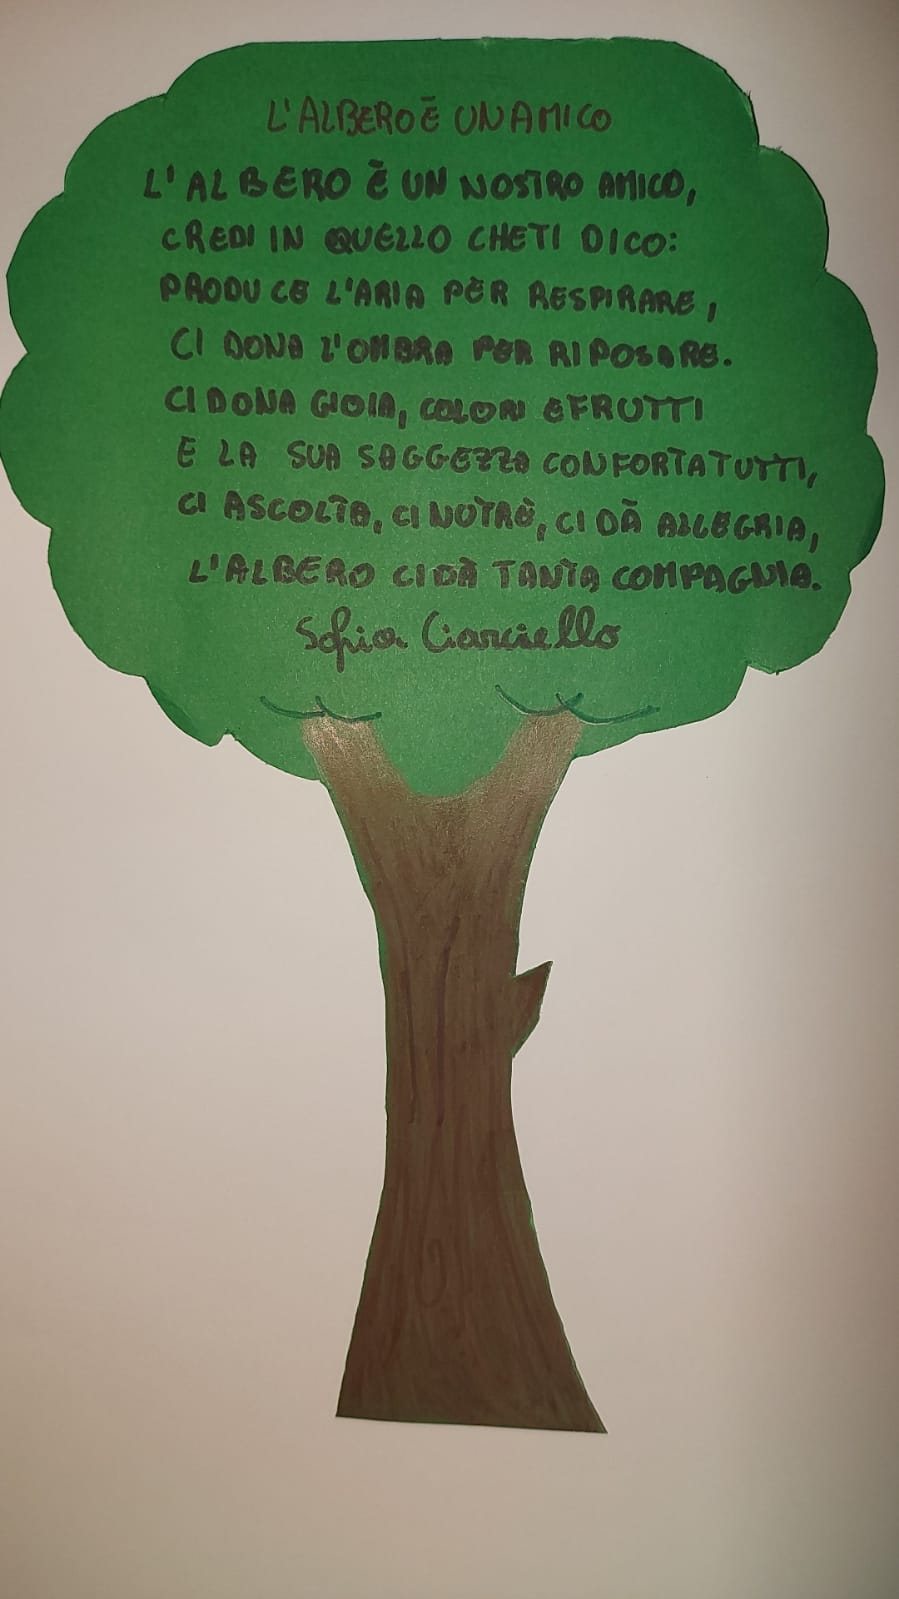 L'ALBERO È UN AMICO
L'ALBERO È UN NOSTRO AMICO,
CREDI IN QUELLO CHE TI DICO:
PRODUCE L'ARIA PER RESPIRARE,
CI DONA L'OMBRA PER RIPOSARE.
CI DONA GIOIA, COLORI E FRUTTI
E LA SUA SAGGEZZA CONFORTA TUTTI,
CI ASCOLTA, CI NUTRE, CI DÀ ALLEGRIA,
L'ALBERO CI DÀ TANTA COMPAGNIA.
Sofia Ciarciello